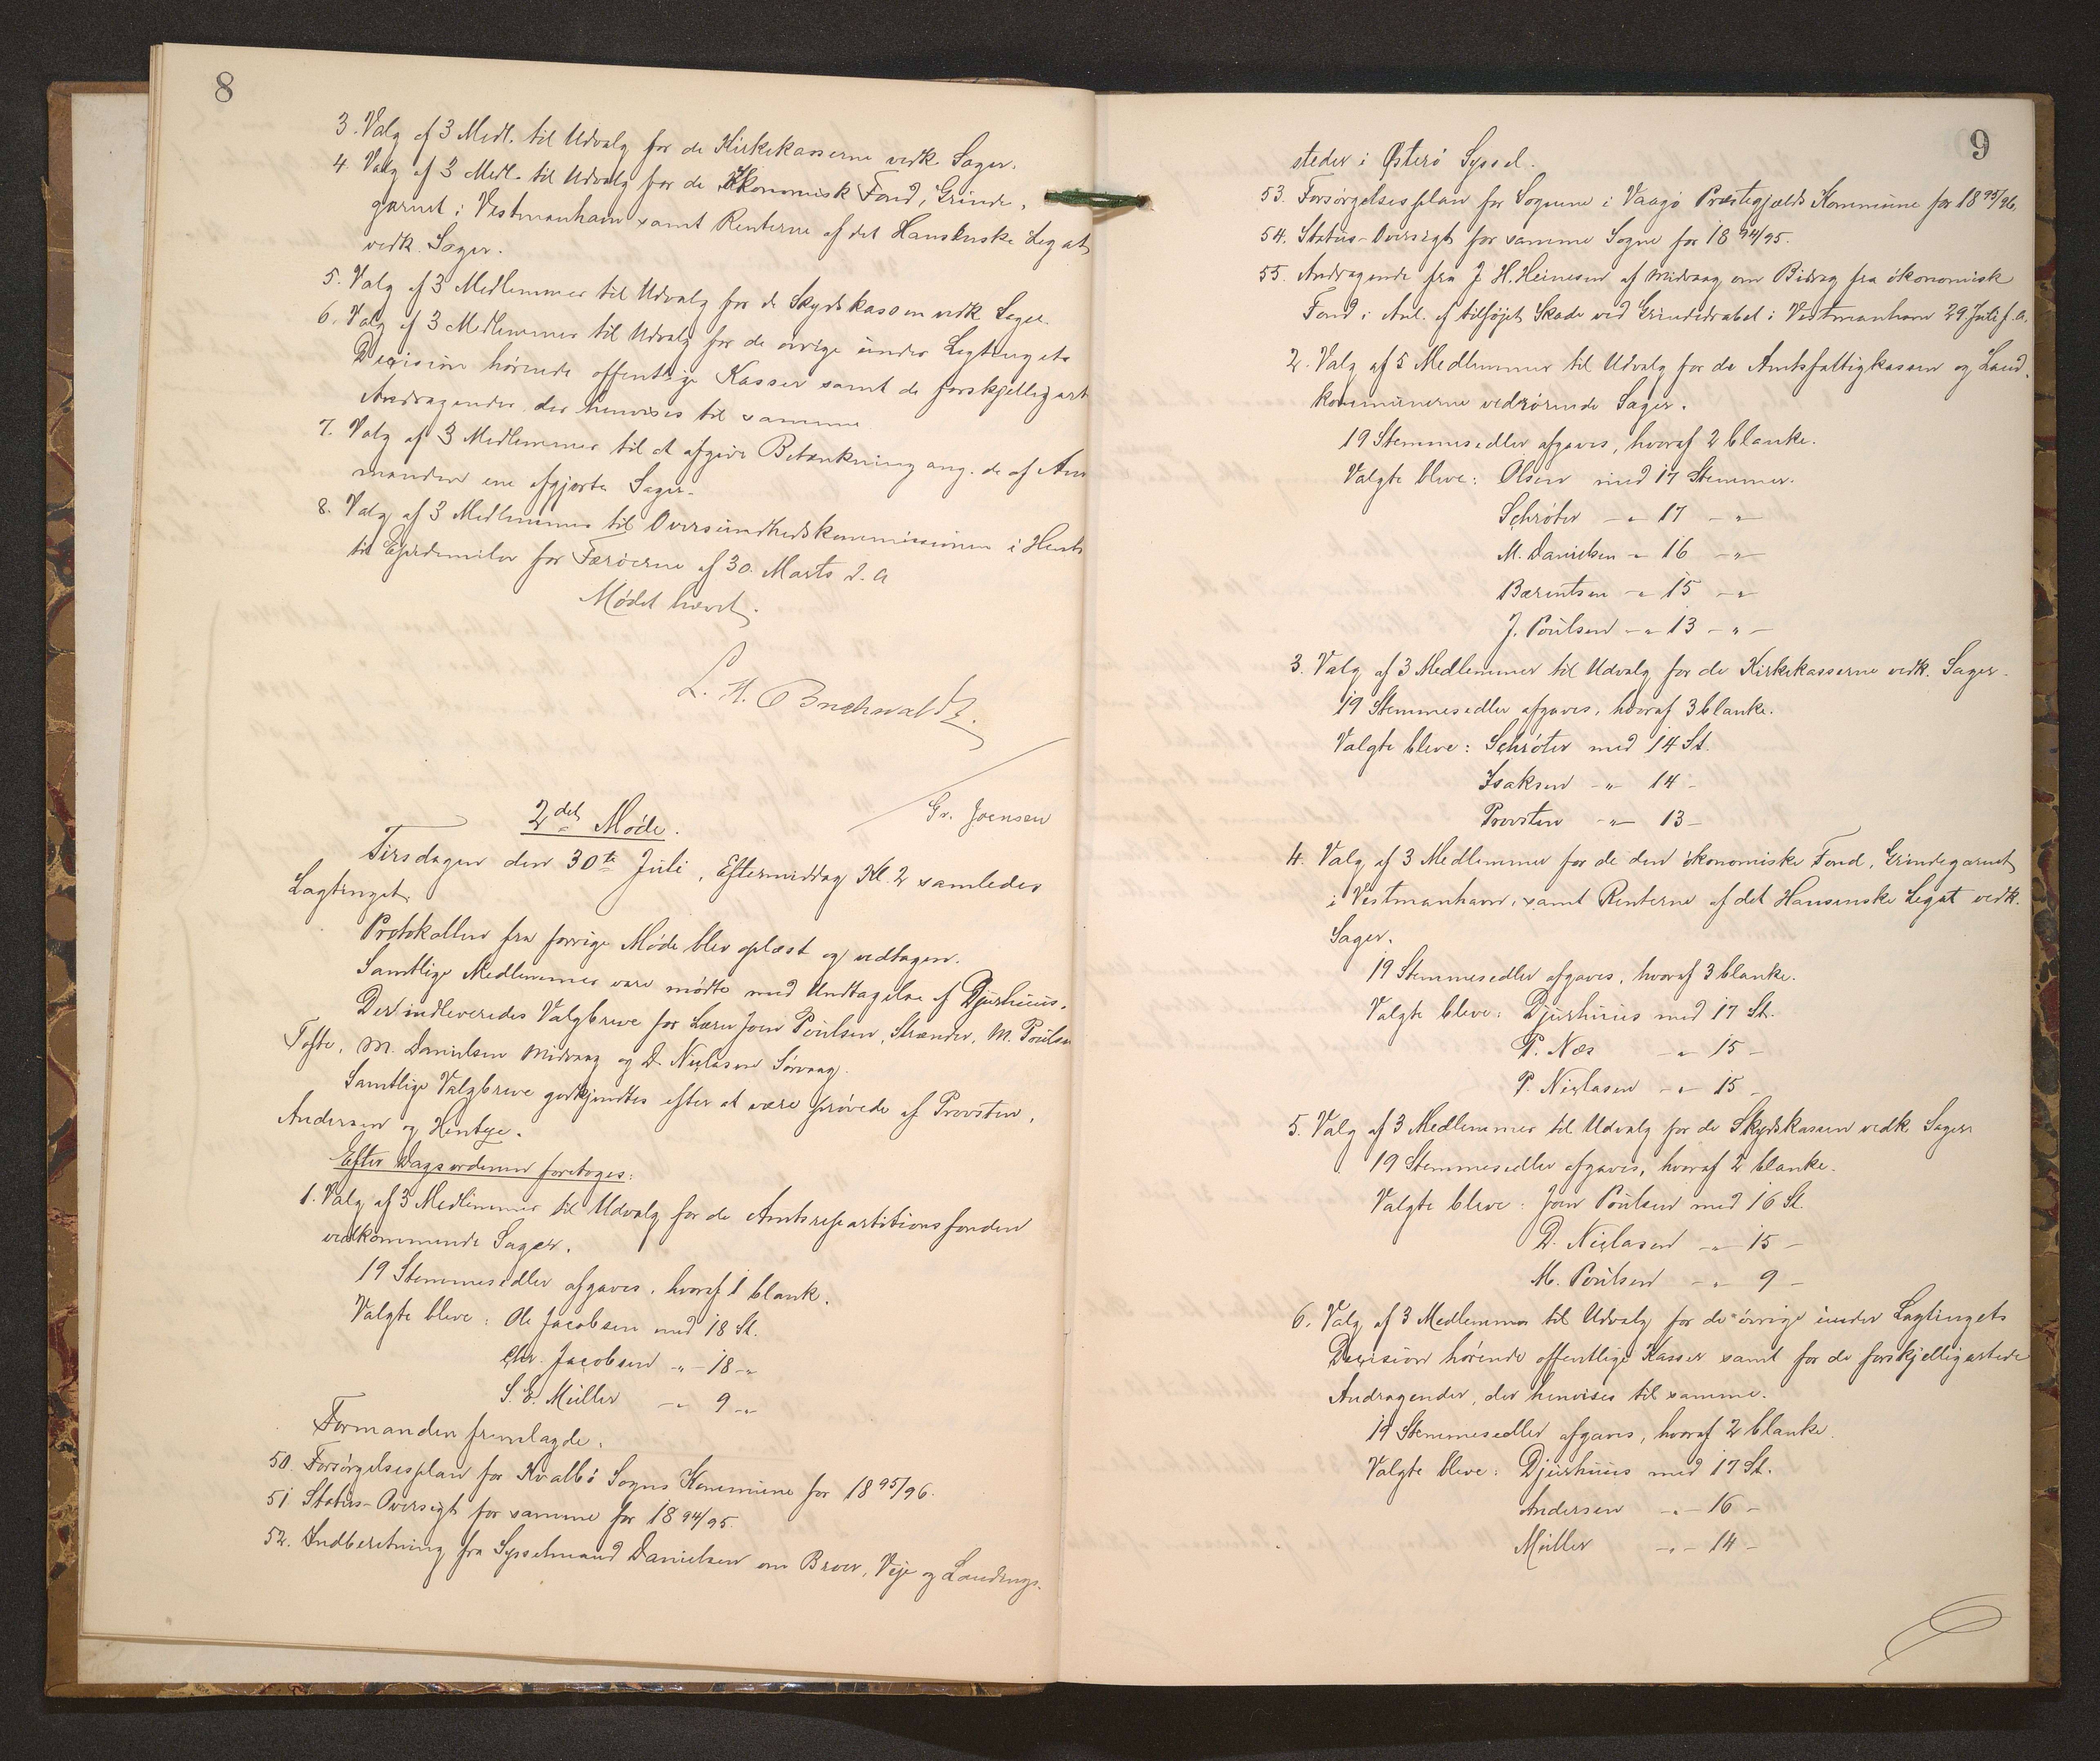 8
3. Valg af 3 Medl. til Udvalg for de Kirkekasserne vedk. Sager.
4. Valg af 3 Medl. til Udvalg for de økonomisk Fond, Grinde-
garnet i Vestmanhavn samt Renterne af det Hansenske Legat
vedk. Sager.
5. Valg af 3 Medlemmer til Udvalg for de Skydskassen vedk Sager.
6. Valg af 3 Medlemmer til Udvalg for de øvrige under Lagtingets
Decision hørende offentlige Kasser samt de forskjelligart
Andragender der henvises til samme
7. Valg af 3 Medlemmer til at afgive Betænkning ang. de af Amt
manden ene afgjorte Sager.
8. Valg af 3 Medlemmer til Oversundhedskommissionen i Henh
til Epidemilov for Færøerne af 30. Marts d. a
Mødet hævet.
L. H. Buchwaldt.
Gr. Joensen
2det Møde.
Tirsdagen den 30te Juli, Eftermiddag Kl. 2 samledes
Lagtinget.
Protokollen fra forrige Møde blev oplæst og vedtagen.
Samtlige Medlemmer vare mødte med Undtagelse af Djurhuus.
Der indleveredes Valgbreve for Lærer Joen Poulsen, Strænder, M. Poulsen
Tofte, M. Danielsen Midvaag og D. Niclasen Sørvaag.
Samtlige Valgbreve godkjendtes efter at være prøvede af Provsten,
Andersen og Hentze.
Efter Dagsordenen foretoges:
1. Valg af 3 Medlemmer til Udvalg for de Amtsrepartitionsfonden
vedkommende Sager.
19 Stemmesedler afgaves, hvoraf 1 blank.
Valgte bleve: Ole Jacobsen med 18 St.
Chr. Jacobsen -"- 18 -"
S. E. Müller -"- 9 -"
Formanden fremlagde:
50. Forsørgelsesplan for Kvalbø Sogns Kommune for 1895/96.
51 Status-Oversigt for samme for 1894/95.
52. Indberetning fra Sysselmand Danielsen om Broer, Veje og Landings-
9
steder i Østerø Syssel.
53. Forsørgelsesplan for Sognene i Vaagø Præstegjælds Kommune for 1895/96.
54. Status-Oversigt for samme Sogne for 1894/95.
55. Andragende fra J. H. Heinesen af Midvaag om Bidrag fra økonomisk
Fond i Anl. af tilføjet Skade ved Grindedrabet i Vestmanhavn 29 Juli f. A.
2. Valg af 5 Medlemmer til Udvalg for de Amtsfattigkassen og Land-
kommunerne vedrørende Sager.
19 Stemmesedler afgaves, hvoraf 2 blanke.
Valgte bleve: Olsen med 17 Stemmer.
Schrøter -"- 17 -"-
M. Danielsen -"- 16 -"-
Bærentsen -"- 15 -"-
J. Poulsen -"- 13 -"-
3. Valg af 3 Medlemmer til Udvalg for de Kirkekasserne vedk. Sager.
19 Stemmesedler afgaves, hvoraf 3 blanke.
Valgte bleve: Schrøter med 14 St.
Isaksen -"- 14 -
Provsten -"- 13 -
4. Valg af 3 Medlemmer for de den økonomiske Fond, Grindegarnet
i Vestmanhavn, samt Renterne af det Hansenske Legat vedk.
Sager.
19 Stemmesedler afgaves, hvoraf 3 blanke.
Valgte bleve: Djurhuus med 17 St.
P. Næs -"- 15 -
P. Niclasen -"- 15 -
5. Valg af 3 Medlemmer til Udvalg for de Skydskassen vedk Sager
19 Stemmesedler afgaves, hvoraf 2 blanke.
Valgte bleve: Joen Poulsen med 16 St.
D. Niclasen -"- 15 -
M. Poulsen -"- 9 -
6. Valg af 3 Medlemmer til Udvalg for de øvrige under Lagtingets
Decision hørende offentlige Kasser samt for de forskjelligartede
Andragender, der henvises til samme.
19 Stemmesedler afgaves, hvoraf 2 blanke.
Valgte bleve: Djurhuus med 17 St.
Andersen -"- 16 -
Müller -"- 14 -